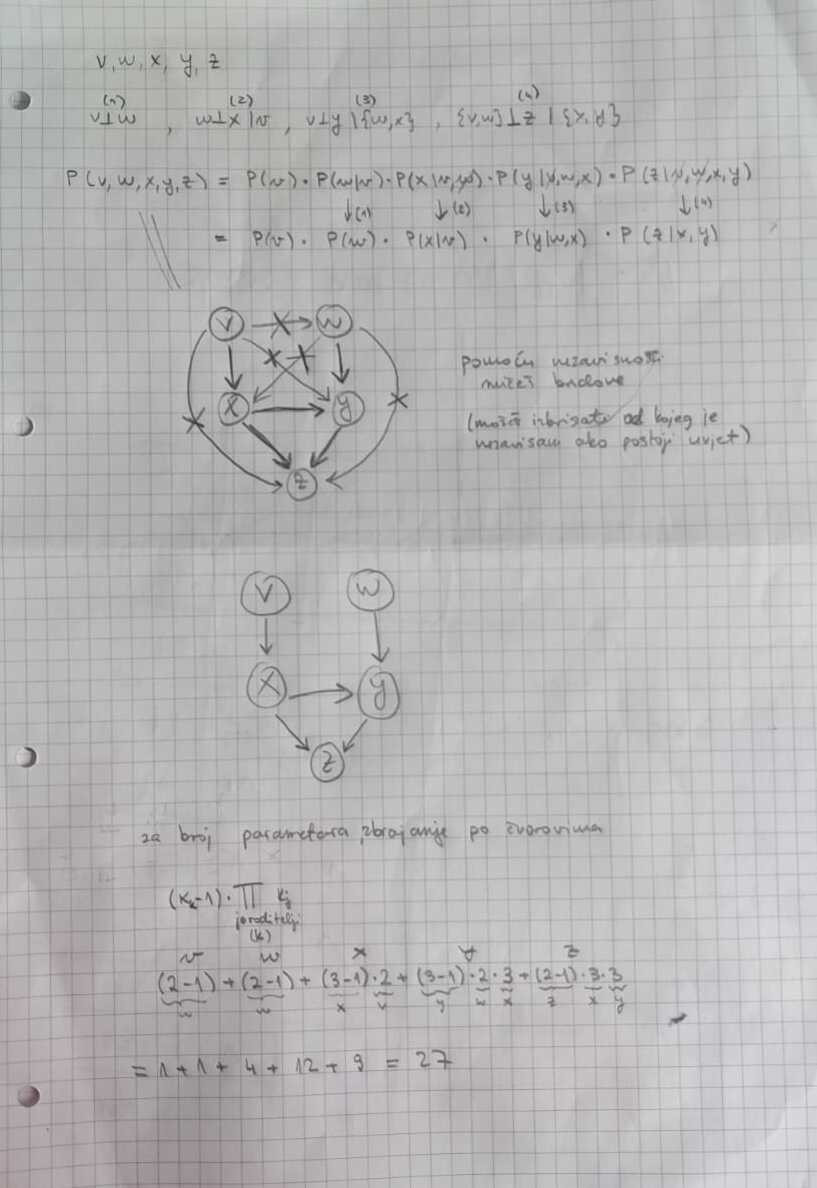 v, w, x, y, z
(1) (2) (3) (4)
v⊥w , w⊥x|v , v⊥y|{w,x} , {v,w}⊥z|{x,y}
P(v,w,x,y,z) = P(v)·P(w|v)·P(x|v,w)·P(y|v,w,x)·P(z|v,w,x,y)
↓(1) ↓(2) ↓(3) ↓(4)
= P(v)· P(w)· P(x|v) · P(y|w,x) · P(z|x,y)
v w
x y
z
pomoću nezavisnosti
mičeš bridove
(možeš izbrisati od kojeg je
nezavisan ako postoji uvjet)
V W
X y
z
za broj parametara, zbrajanje po čvorovima
(Kk-1)· ∏ Kj
j∈roditelji
(k)
v w x y z
(2-1) + (2-1) + (3-1)·2 + (3-1)·2·3 + (2-1)·3·3
w w x v y w x z x y
= 1 + 1 + 4 + 12 + 9 = 27